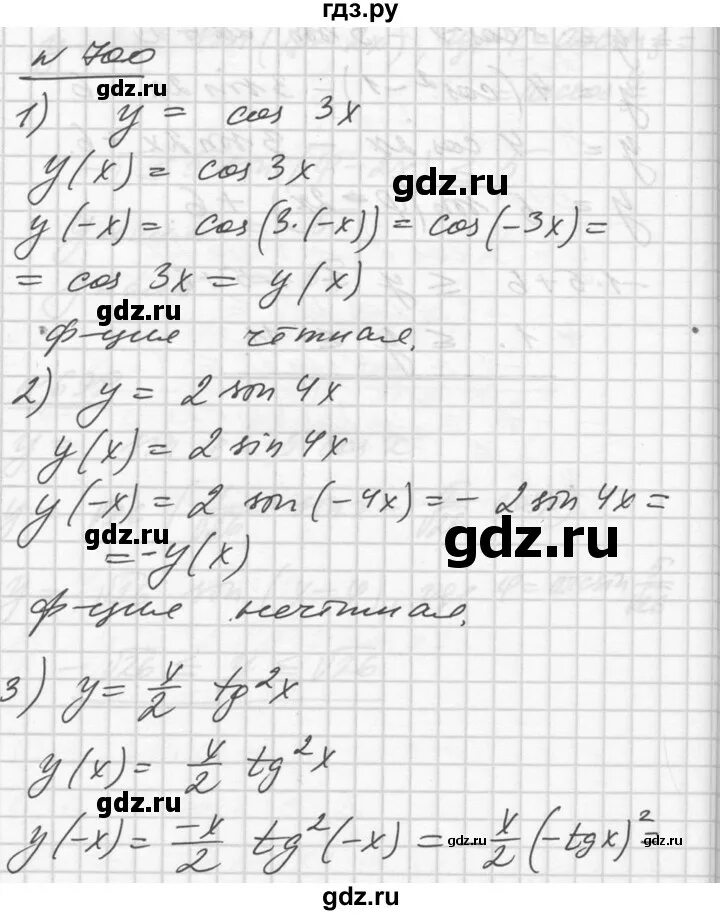 гдз.ру
n 700
gdz.ru
1) y = cos 3x
y(x) = cos 3x
gdz.ru
y(-x) = cos(3·(-x)) = cos(-3x) =
= cos 3x = y(x)
gdz.ru
ф-ция чётная.
2) y = 2 sin 4x
gdz.ru
y(x) = 2 sin 4x
y(-x) = 2 sin(-4x) = - 2 sin 4x =
gdz.ru
gdz.ru
= -y(x)
ф-ция нечётная.
3) y = x/2 tg²x
y(x) = x/2 tg²x
gdz.ru
y(-x) = -x/2 tg²(-x) = - x/2 (-tgx)² =
gdz.ru
gdz.ru
gdz.ru